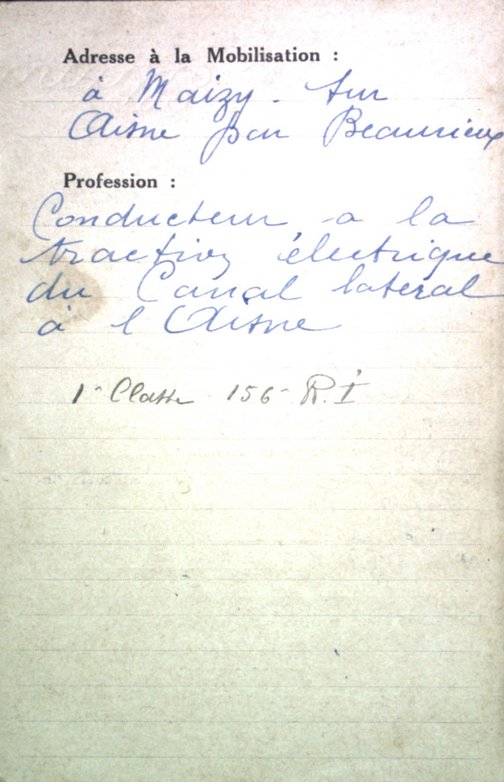 Adresse à la Mobilisation :
à Maizy - sur
Aisne par Beaurieux
Profession :
Conducteur a la
traction électrique
du Canal latéral
à l Aisne
1e Classe 156e R.I